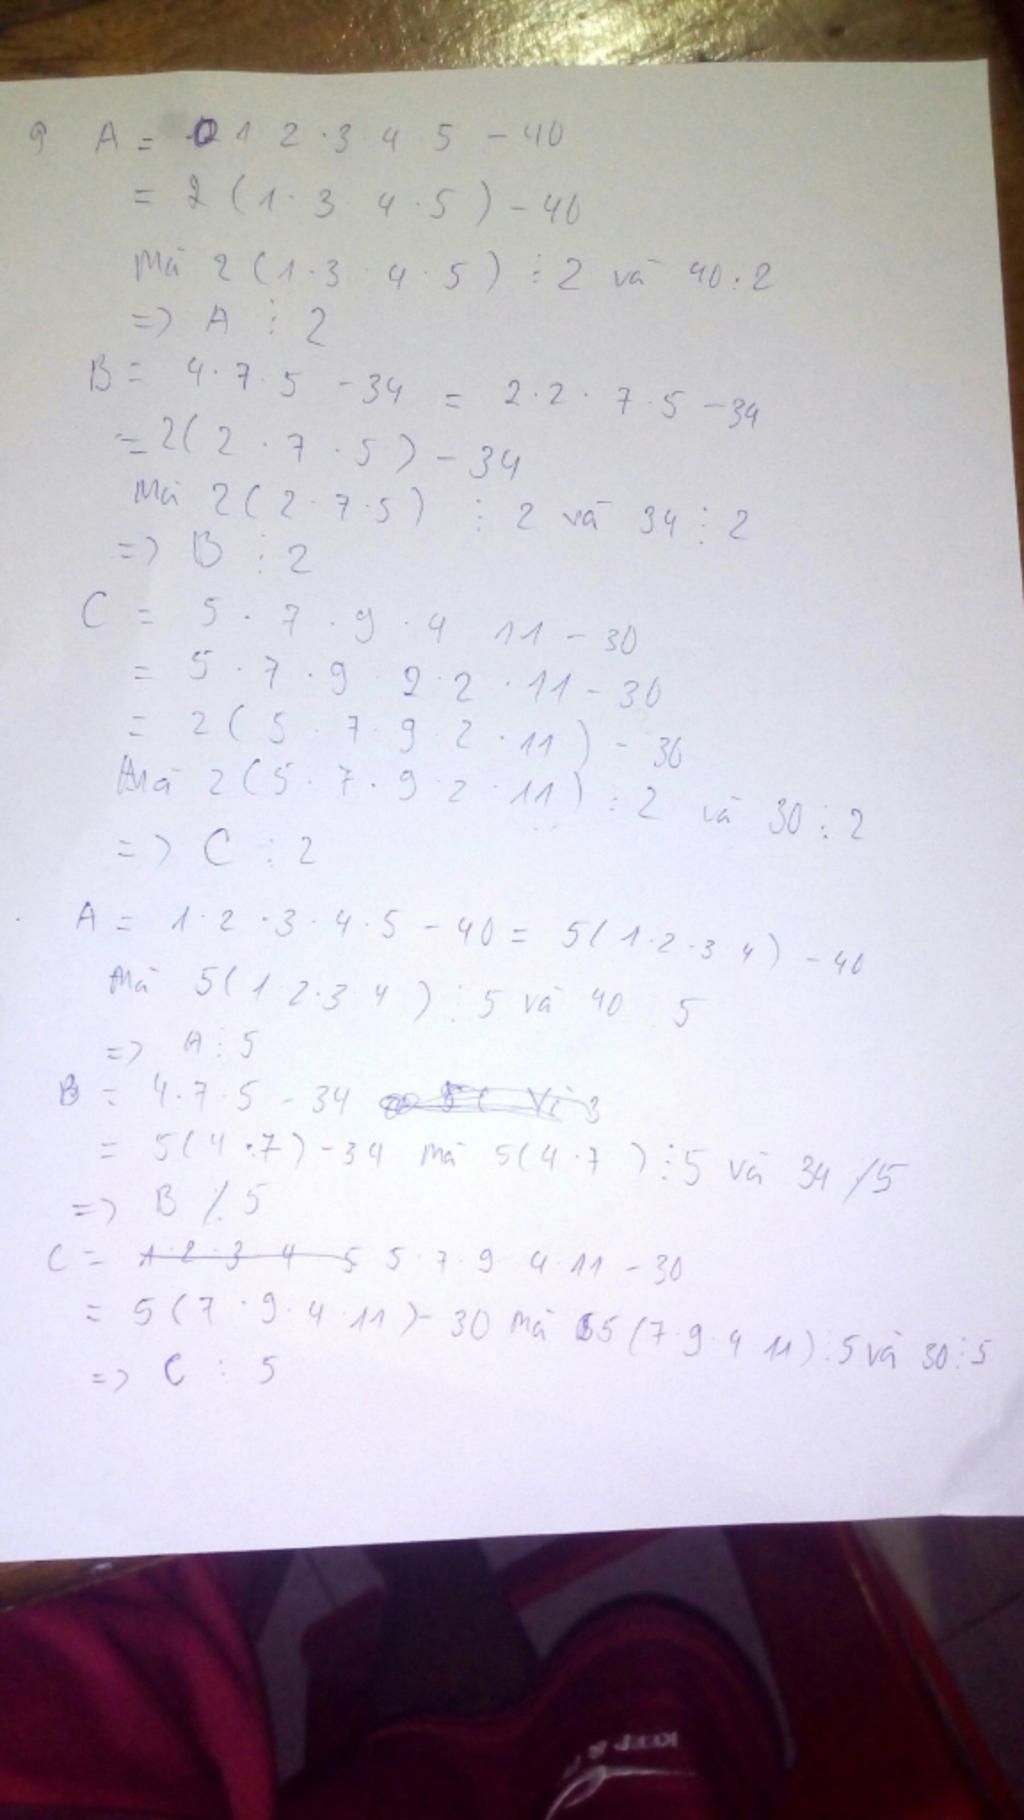 A = 1 2 · 3 4 5 - 40
= 2 ( 1 · 3 4 · 5 ) - 40
Mà 2 ( 1 · 3 · 4 · 5 ) ⋮ 2 và 40 : 2
=> A ⋮ 2
B = 4 · 7 · 5 - 34 = 2 · 2 · 7 · 5 - 34
= 2 ( 2 · 7 · 5 ) - 34
Mà 2 ( 2 · 7 · 5 ) ⋮ 2 và 34 ⋮ 2
=> B ⋮ 2
C = 5 · 7 · 9 · 4 11 - 30
= 5 · 7 · 9 2 · 2 · 11 - 30
= 2 ( 5 · 7 · 9 · 2 · 11 ) - 30
Mà 2 ( 5 · 7 · 9 2 · 11 ) ⋮ 2 và 30 ⋮ 2
=> C ⋮ 2
A = 1 · 2 · 3 · 4 · 5 - 40 = 5 ( 1 · 2 · 3 4 ) - 40
Mà 5 ( 1 2 · 3 4 ) ⋮ 5 và 40 5
=> A ⋮ 5
B = 4 · 7 · 5 - 34
= 5 ( 4 · 7 ) - 34 mà 5 ( 4 · 7 ) ⋮ 5 và 34 /5
=> B /. 5
C = 1 · 2 · 3 4 5 5 · 7 · 9 4 · 11 - 30
= 5 ( 7 · 9 · 4 · 11 ) - 30 mà 5 ( 7 · 9 · 4 11 ) ⋮ 5 và 30 ⋮ 5
=> C ⋮ 5
KEEP &